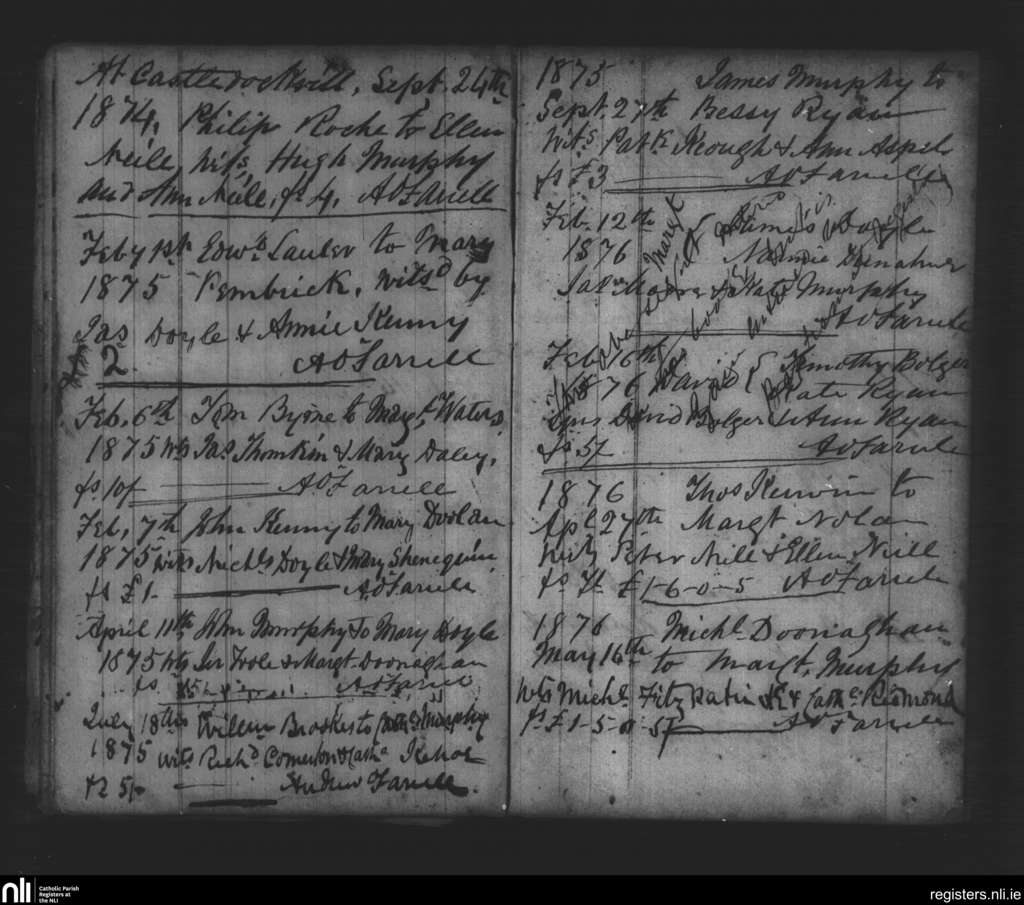 At Castledockrill, Sept. 24th
1874, Philip Roche to Ellen
Neile, wits, Hugh Murphy
and Ann Neile, fs 4, A O'Farrell
Feby 1st Edwd Lauler to Mary
1875 Pembrick, witsd by
Jas Doyle & Annie Kenny
2 A O'Farrell
Feb, 6th Tom Byrne to Margt Waters
1875 wts Jas Thomkin & Mary Daley,
fs 10/ A O'Farrell
Feb, 7th John Kenny to Mary Doolan
1875 wits Michls Doyle & Mary
fs £1- A O'Farrell
April 11th, John Murphy to Mary Doyle
1875 wts Toole & Margt Doonaghan
fs A O'Farrell
July 18th Willm Brookes to Murphy
1875 wits Richd & Catha Kehoe
5/- Andrew Farrell.
1875 James Murphy to
Sept. 27th Bessy Ryan
Wits Patk Keough & Ann Aspel
fs £3 A O'Farrell
Feb. 12th James Doyle
1876 Nannie Dunahue
Kate Murphy
A O'Farrell
Feb 16th Timothy Bolger
1876 Kate Ryan
David Bolger & Ann Ryan
fs 5/ A O'Farrell
1876 Thos Kerwin to
Apl 27th Margt Nolan
wits Peter Neill & Ellen Neill
fs £1-6-0-5 A O'Farrell
1876 Michl Doonaghan
May 16th to Margt, Murphy
Wts Michl Fitzpatrick & Catha Redmond
fs £1-5-0-5 A O'Farrell
nli
Catholic Parish
Registers at
the NLI
registers.nli.ie